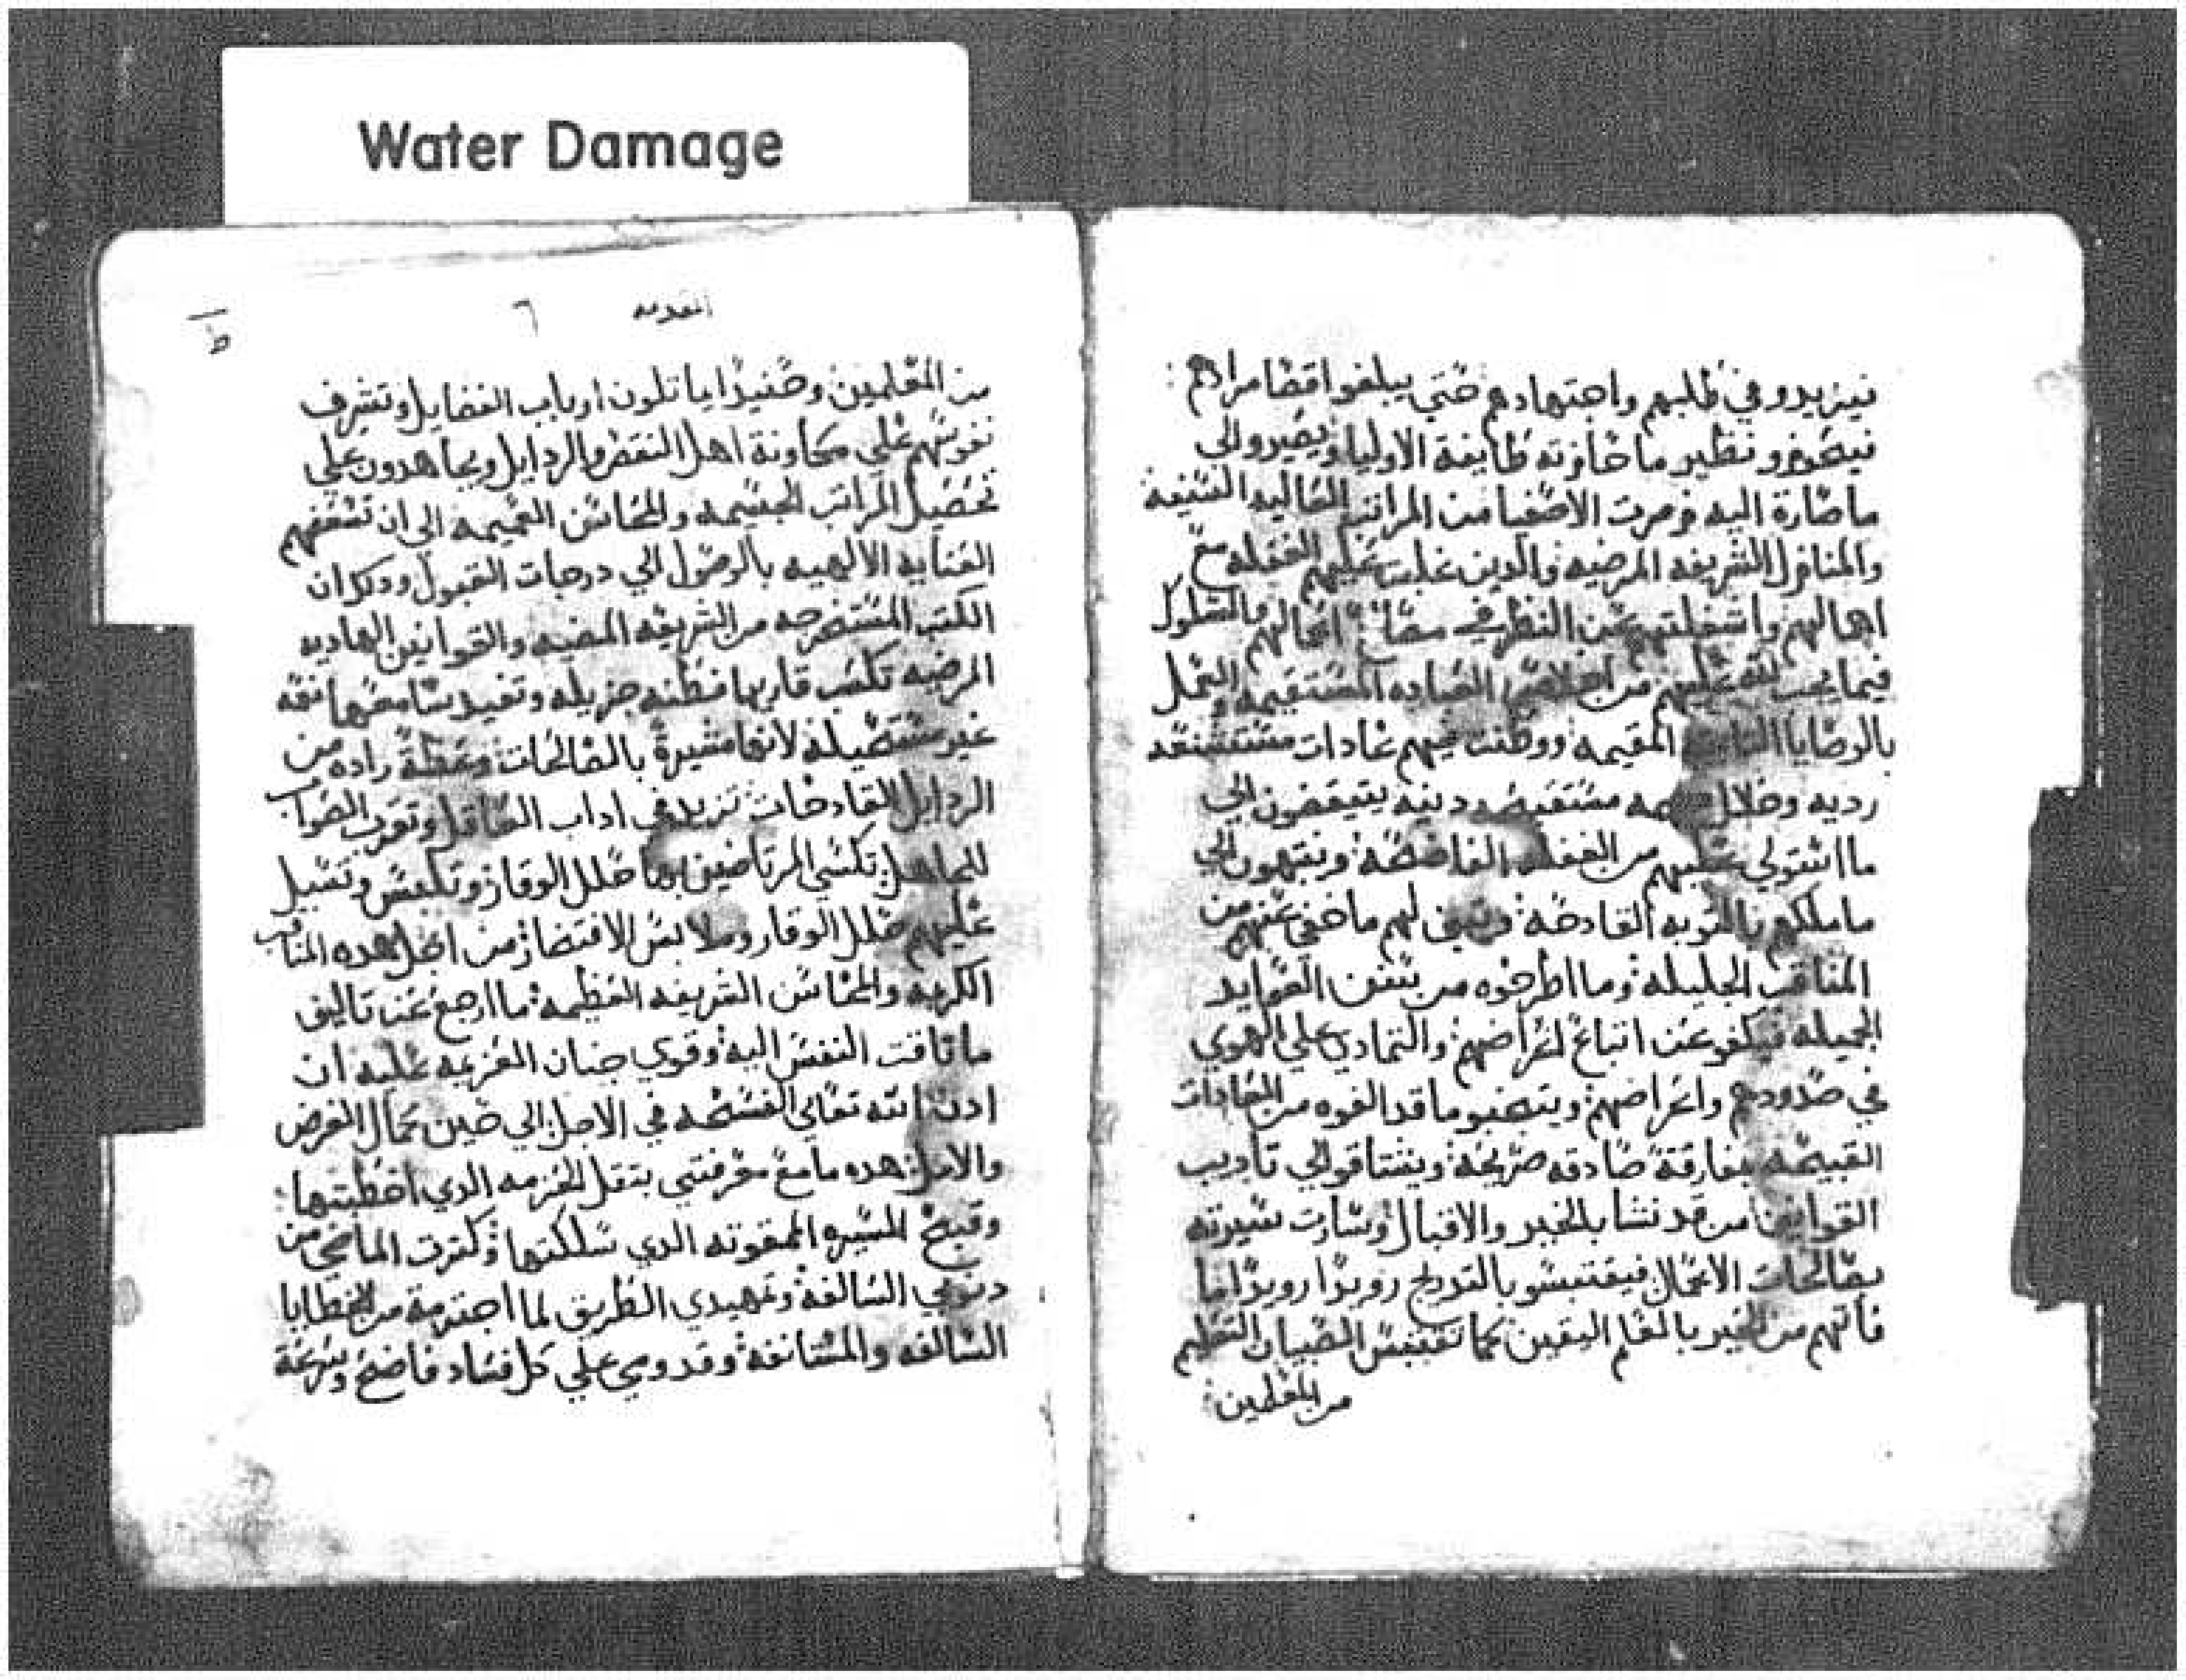 Water Damage
فيزيدو في طلبهم واجتهادهم حتي يبلغو اقصا مرادهم :
فيحوزو نظير ما حازته طايفة الاوليا ويصيرو الي
ما صارة اليه زمرت الاصفيا من المراتب العاليه السنيه
والمنازل الشريفه المرضيه والدين غلبت عليهم الغفله مع
اهمالهم واشغلتهم عن النظر في اعمالهم
فيما يجب لله عليهم من العباده المستقيمه والتمحل
بالوصايا المقيمه ووطنت فيهم عادات مستشنعه
رديه وخلال مستقبحه دنيه يتيقضون الي
ما استولي عليهم من الغفله الفاضحه وينتبهون الي
ما ملكهم بالتوبه القادحة لهم ما خفي عنهم من
المناقب الجليله وما اطرحوه من بعض العوايد
الجميله فيكفو عن اتباع اغراضهم والتمادي علي الهوي
في صدودهم واعراضهم ويتجنبو ما قد الفوه من العادات
القبيحه مفارقة صادقه صريحة ويشتاقو الي تاديب
القوانين من قد نشا بالخير والاقبال وسارت سيرته
بصالحات الاعمال فيقتبسو بالتدريج رويدًا رويدًا ما
فاتهم من الخير بالعلم اليقين كما تقتبس الصبيان التعليم
من المعلمين :
المقدمه ٦
ط
من المعلمين وحنيدا يا تلون ارباب الفضايل وتشرف
نفوسهم علي مجاونة اهل النقص والردايل ويجاهدون علي
تحصيل المراتب الجسيمه والمحاسن العميمه الي ان تسعفهم
العنايه الالهيه بالوصول الي درجات القبول ودلك ان
الكتب المستخرجه من الشريعه المضيه والقوانين الهاديه
المرضيه تكسب قاريها فطنه جزيله وتفيد سامعها نفعه
غير مستحيلة لانها مشيرة بالصالحات وعظة راده من
الردايل القادحات تزيد في اداب العاقل وتقرب الصواب
للجاهل تكسي المرتاضين بها حلل الوقار وتلبس وتسبل
عليهم حلل الوقار وملابس الافتخار من اجل هده المناقب
الكريمه والمحاسن الشريفه العظيمه ما ارجع عن تاليف
ما تاقت النفس اليه وقوي جنان العزيمه عليه ان
ادن الله تعالي الفسحه في الاجل الي حين كمال الغرض
والامل هده ما مع معرفتي بتقل الحزمه الدي احطبتها :
وقبح السيره الممقوته الدي سلكتها وكترت الماضي من
دنوبي السالفة وتمهيدي الطريق لما اجترمة من الخطايا
السالفه والمستانفة وقدومي علي كل فساد فاضح وسرعة